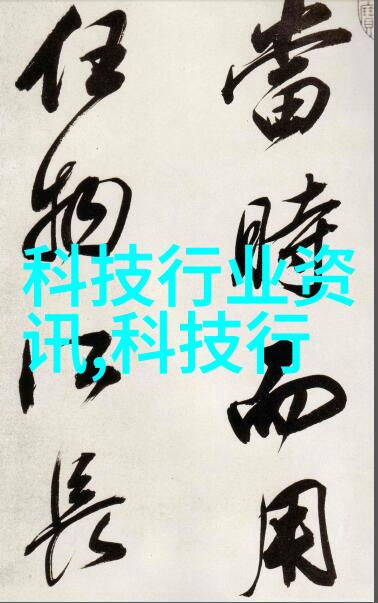 當時而用
任物長
科技行业资
讯,科技行